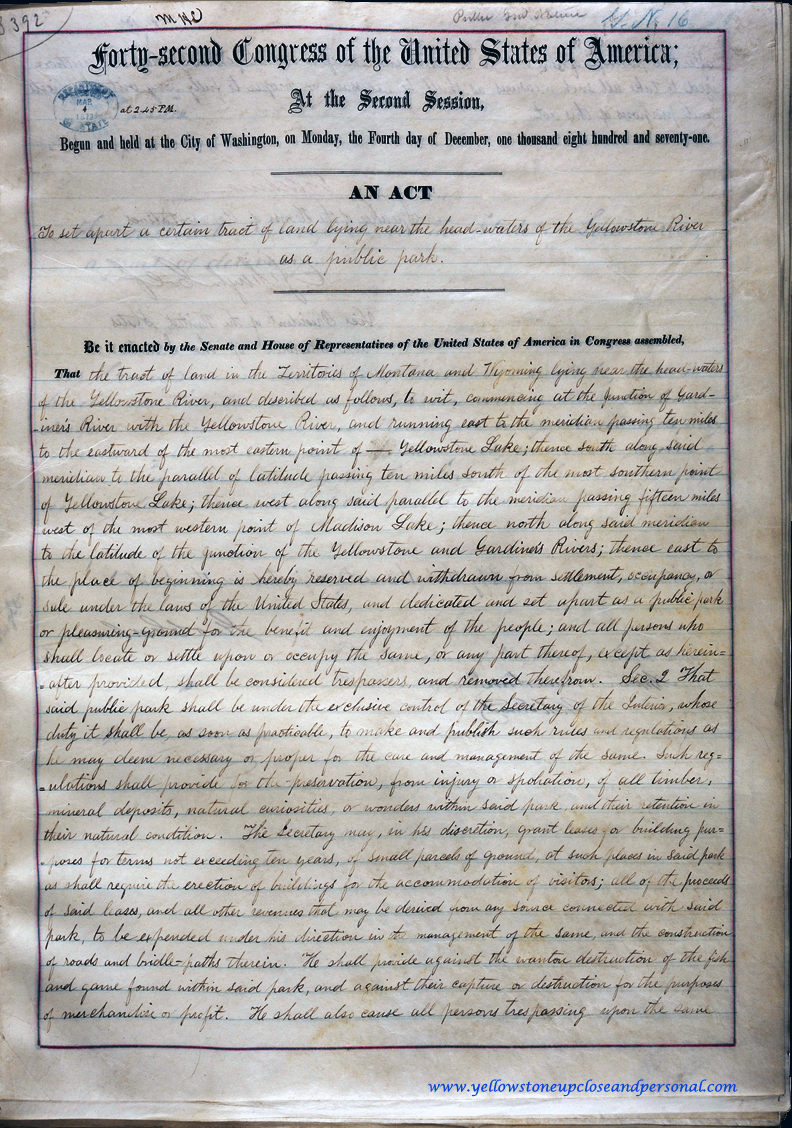 3392
Public Gnl Nature G. N. 16
Forty-second Congress of the United States of America;
At the Second Session,
DEPARTMENT
MAR
4
OF STATE
at 2.45 P.M.
Begun and held at the City of Washington, on Monday, the Fourth day of December, one thousand eight hundred and seventy-one.
AN ACT
To set apart a certain tract of land lying near the head-waters of the Yellowstone River
as a public park.
Be it enacted by the Senate and House of Representatives of the United States of America in Congress assembled,
That the tract of land in the Territories of Montana and Wyoming lying near the head-waters
of the Yellowstone River, and described as follows, to wit, commencing at the junction of Gard-
-iner's River with the Yellowstone River, and running east to the meridian passing ten miles
to the eastward of the most eastern point of — Yellowstone Lake; thence south along said
meridian to the parallel of latitude passing ten miles south of the most southern point
of Yellowstone Lake; thence west along said parallel to the meridian passing fifteen miles
west of the most western point of Madison Lake; thence north along said meridian
to the latitude of the junction of the Yellowstone and Gardiner's Rivers; thence east to
the place of beginning is hereby reserved and withdrawn from settlement, occupancy, or
sale under the laws of the United States, and dedicated and set apart as a public park
or pleasuring-ground for the benefit and enjoyment of the people; and all persons who
shall locate or settle upon or occupy the same, or any part thereof, except as herein=
=after provided, shall be considered trespassers, and removed therefrom. Sec. 2 That
said public park shall be under the exclusive control of the Secretary of the Interior, whose
duty it shall be, as soon as practicable, to make and publish such rules and regulations as
he may deem necessary or proper for the care and management of the same. Such reg=
=ulations shall provide for the preservation, from injury or spoliation, of all timber,
mineral deposits, natural curiosities, or wonders within said park, and their retention in
their natural condition. The Secretary may, in his discretion, grant leases for building pur=
=poses for terms not exceeding ten years, of small parcels of ground, at such places in said park
as shall require the erection of buildings for the accommodation of visitors; all of the proceeds
of said leases, and all other revenues that may be derived from any source connected with said
park, to be expended under his direction in the management of the same, and the construction
of roads and bridle-paths therein. He shall provide against the wanton destruction of the fish
and game found within said park, and against their capture or destruction for the purposes
of merchandise or profit. He shall also cause all persons trespassing upon the same
www.yellowstoneupcloseandpersonal.com